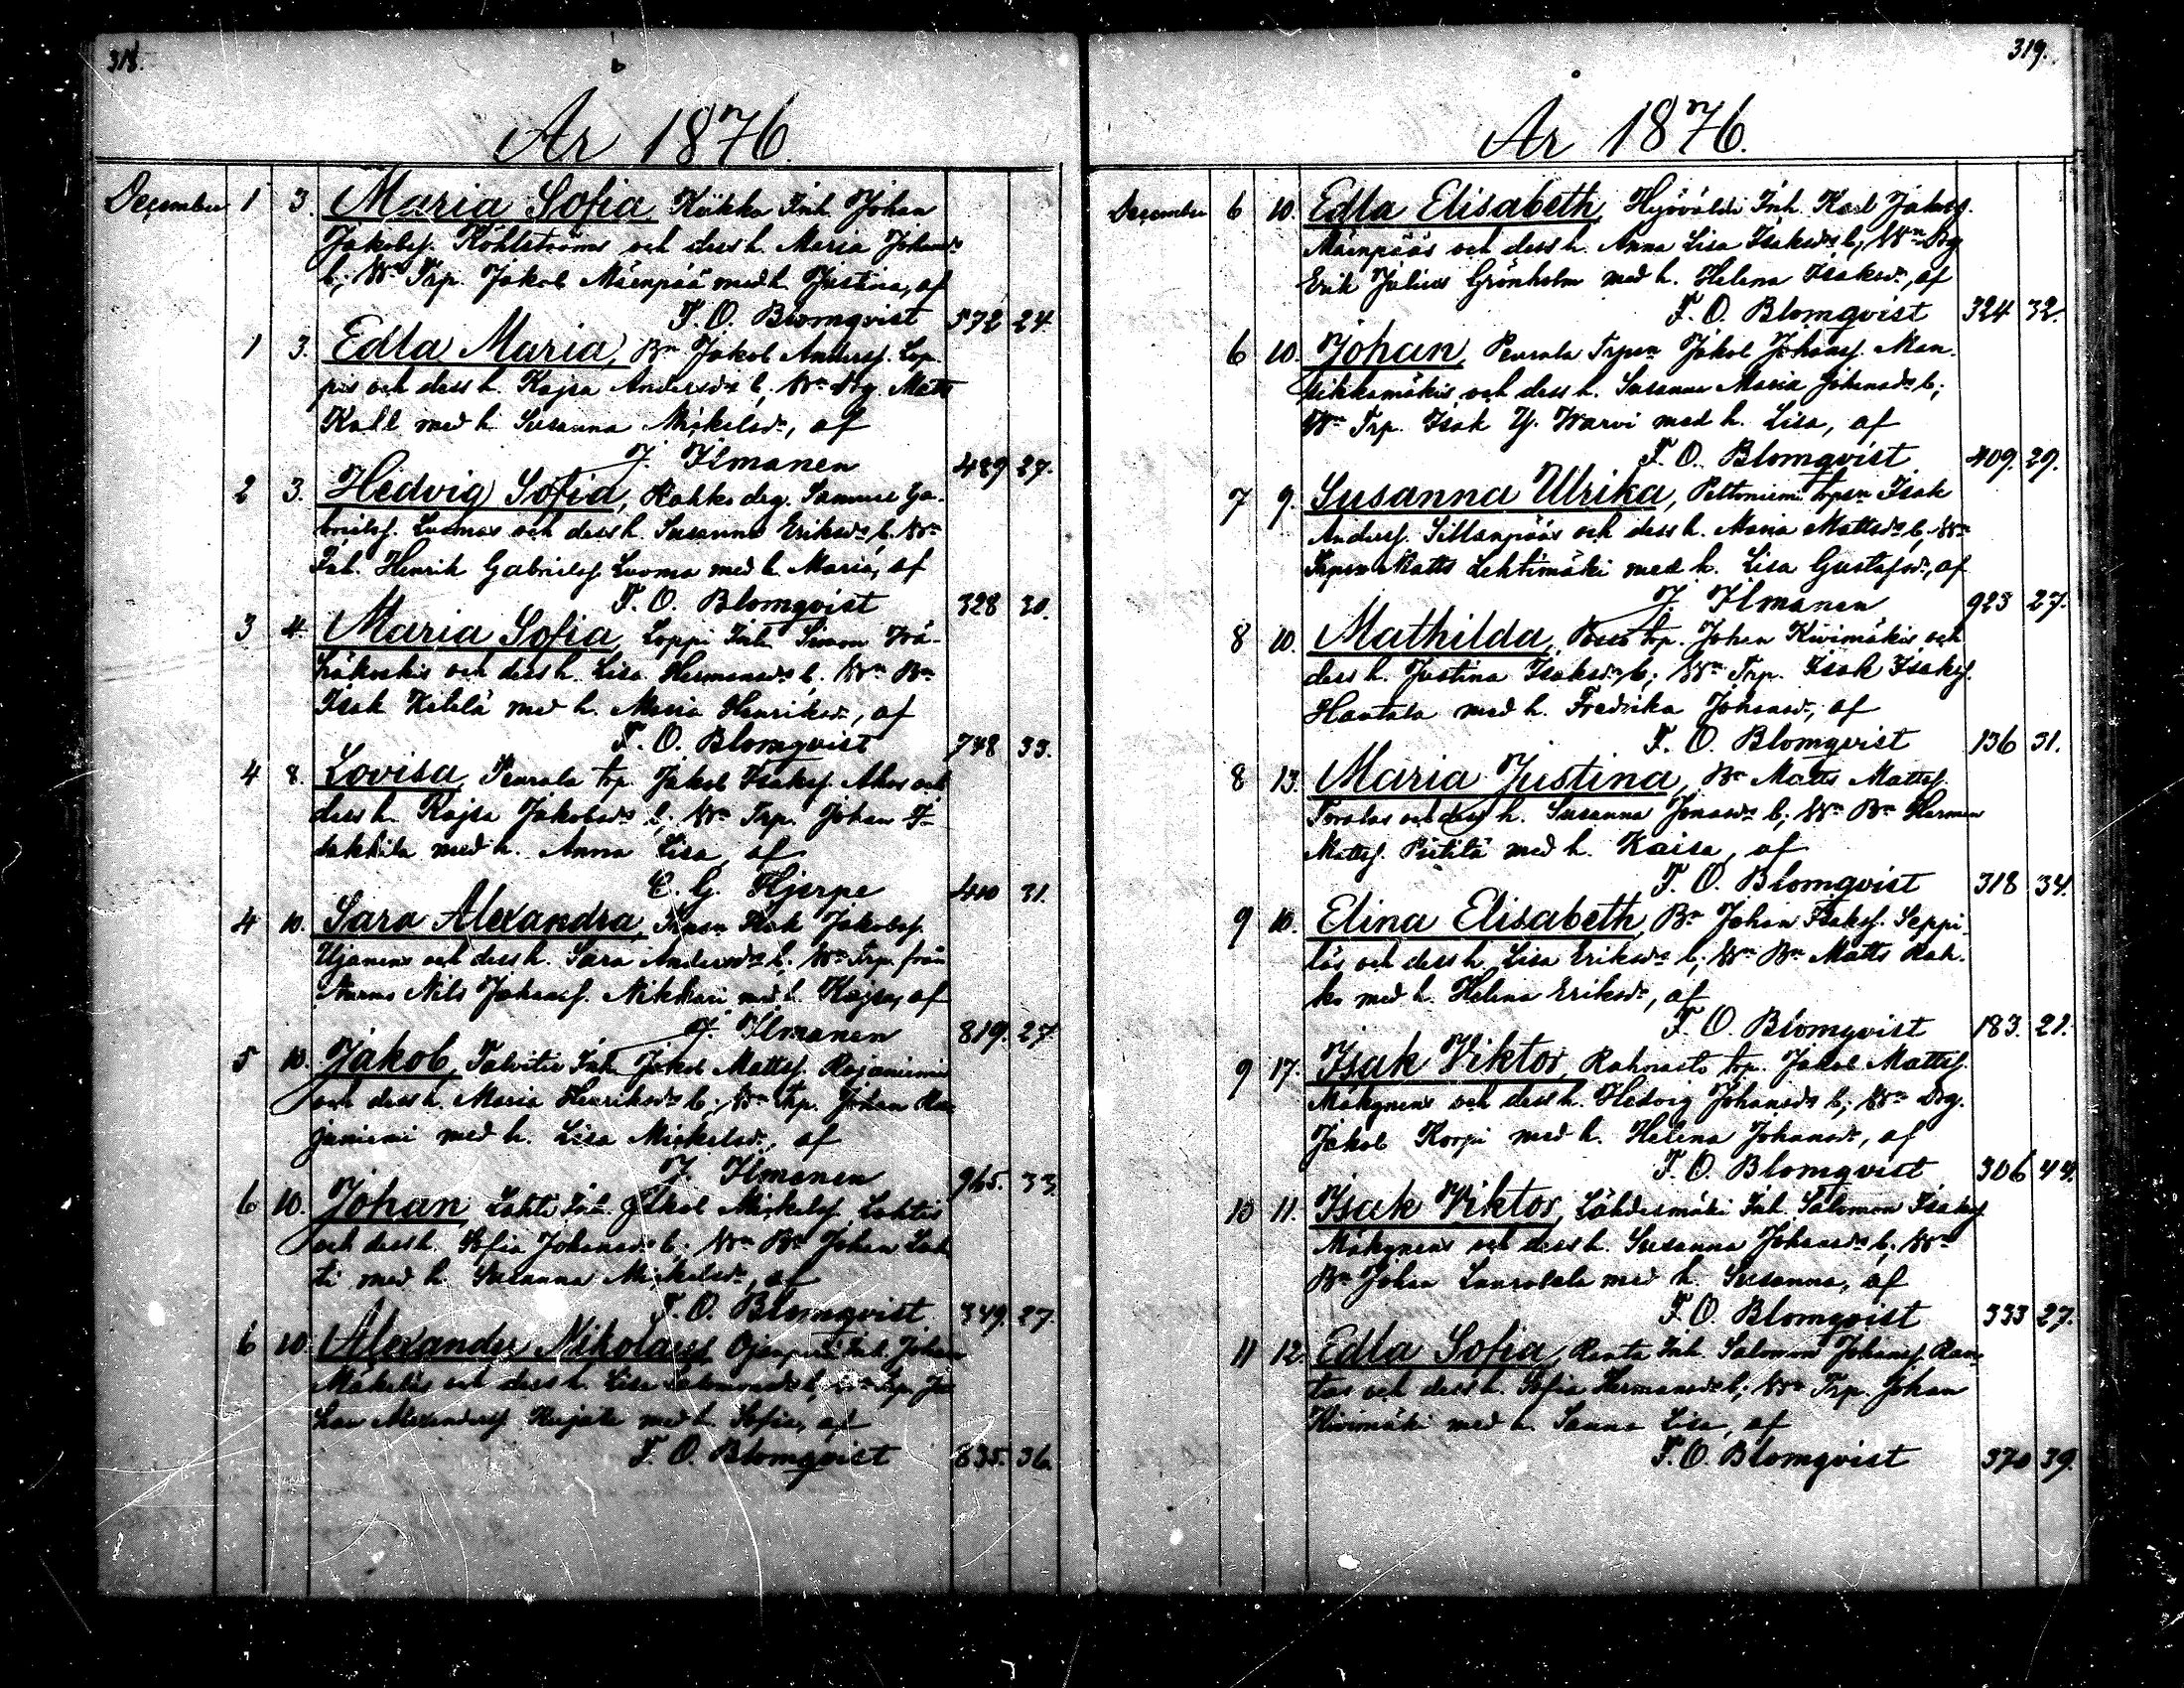 318.
År 1876.
December 1 3. Maria Sofia, Kukko Inh. Johan
Jakobsf. Kohlströms och dess h. Maria Johansdr
b; Wn Trp. Jakob Mäenpää med h. Justina, af
F. O. Blomqvist 572 24.
1 3. Edla Maria, Bn Jakob Andersf. Lop-
pis och dess h. Kajsa Andersdr b; Wn drg. Matts
Kall med h. Susanna Mickelsdr, af
J. Ilmanen 489 27.
2 3. Hedvig Sofia, Kahko drg. Samuel Ga-
brielsf. Luomas och dess h. Susanna Eriksdr b. Wn
Inh. Henrik Gabrielsf. Luoma med h. Maria, af
F. O. Blomqvist 328 30.
3 4. Maria Sofia, Loppi Inh. Simon
och dess h. Lisa Hermansdr b. Wn Bn
Isak Ketelä med h. Maria Henriksdr, af
F. O. Blomqvist 748 33.
4 8. Lovisa, Peurala trp. Jakob Isaksf. Ahos och
dess h. Kajsa Jakobsdr b; Wn Trp. Johan
med h. Anna Lisa, af
C. G. Hjerpe 410 31.
4 10. Sara Alexandra, Trpsn Isak Jakobsf.
Ujanens och dess h. Sara Andersdr b; Wn Trp. från
Nurmo Nils Johansf. Nikkari med h. Kajsa, af
J. Ilmanen 819. 27.
5 10. Jakob, Talvitie Inh. Jakob Mattsf. Rajaniemis
och dess h. Maria Henriksdr b; Wn trp. Johan Ra-
janiemi med h. Lisa Mickelsdr, af
J. Ilmanen 965. 33.
6 10. Johan, Lahti Inh. Jakob Mickelsf. Lahtis
och dess h. Sofia Johansdr b; Wn Bn Johan Lah-
ti med h. Susanna Mickelsdr, af
F. O. Blomqvist. 349. 27.
6 10. Alexander Nikolaus, Inh. Johan
Mäkeläs och dess h. Lisa Salomonsdr b; Wn trp. Jo-
han Alexandersf. med h. Sofia, af
F. O. Blomqvist 835. 36.
319.
År 1876.
December 6 10. Edla Elisabeth, Inh. Karl Jakobsf.
Mäenpääs och dess h. Anna Lisa Isaksdr b; Wn Drg
Erik Julius Grönholm med h. Helena Isaksdr, af
F. O. Blomqvist 324 32.
6 10. Johan, Peurala Trpsn Jakob Johansf. Man-
sikkamäkis och dess h. Susanna Maria Johansdr b;
Wn Trp. Isak Y. Warvi med h. Lisa, af
F. O. Blomqvist 409. 29.
7 9. Susanna Ulrika, Peltoniemi trpsn Isak
Andersf. Sillanpääs och dess h. Maria Mattsdr b; Wn
Trpsn Matts Lehtimäki med h. Lisa Gustafsdr, af
J. Ilmanen 923 27.
8 10. Mathilda, trp. Johan Kivimäkis och
dess h. Justina Isaksdr b; Wn Trp. Isak Isaksf.
Hautala med h. Fredrika Johansdr, af
F. O. Blomqvist 136 31.
8 13. Maria Justina, Bn Matts Mattsf.
och dess h. Susanna Jonasdr b; Wn Bn Herman
Mattsf. Pietilä med h. Kaisa, af
F. O. Blomqvist 318 34.
9 10. Elina Elisabeth, Bn Johan Isaksf. Seppi-
läs och dess h. Lisa Eriksdr b; Wn Bn Matts Kah-
ko med h. Helena Eriksdr, af
F. O. Blomqvist 183. 21.
9 17. Isak Viktor, Rahnasto trp. Jakob Mattsf.
Mäkynens och dess h. Hedvig Johansdr b; Wn Drg.
Jakob Korpi med h. Helena Johansdr, af
F. O. Blomqvist 306 44.
10 11. Isak Viktor, Lähdesmäki Inh. Salomon Isaksf.
Mäkynens och dess h. Susanna Johansdr b; Wn
Bn Johan Laurolala med h. Susanna, af
F. O. Blomqvist 333 27.
11 12. Edla Sofia, Ranta Inh. Salomon Johansf. Ran-
tas och dess h. Sofia Hermansdr b; Wn Trp. Johan
Kivimäki med h. Sanna Lisa, af
F. O. Blomqvist 370 39.